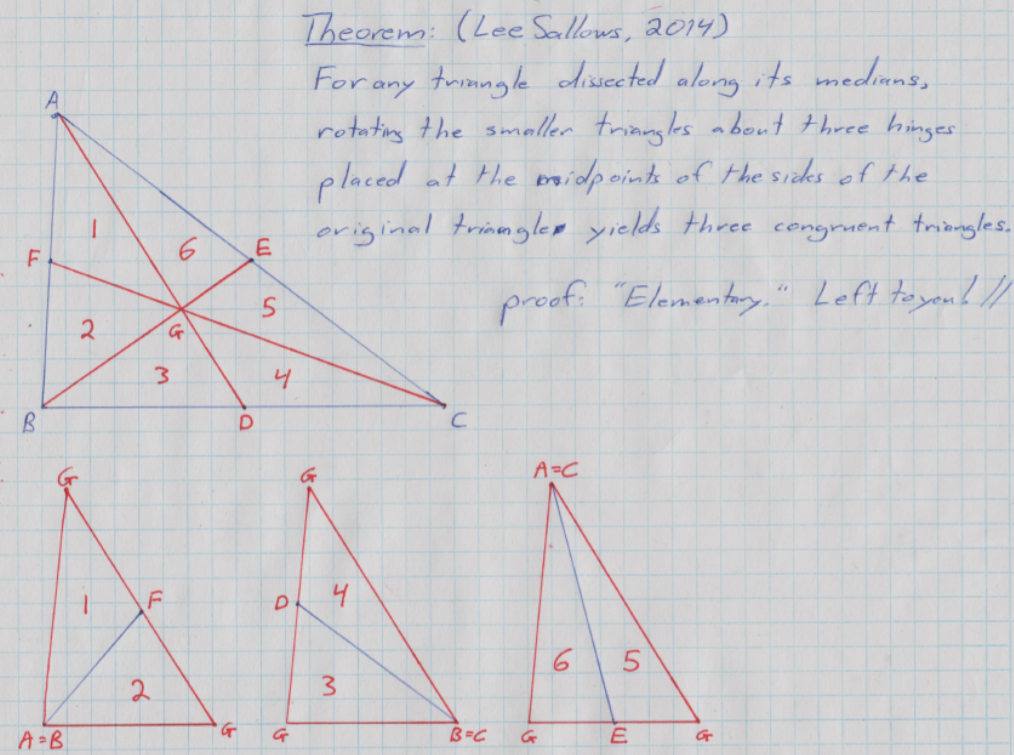 Theorem: (Lee Sallows, 2014)
For any triangle dissected along its medians,
rotating the smaller triangles about three hinges
placed at the midpoints of the sides of the
original triangle yields three congruent triangles.
proof: "Elementary." Left to you! //
A
1
6
E
F
5
G
2
3
4
B
D
C
G
1
F
2
A=B
G
G
4
D
3
G
B=C
A=C
6
5
G
E
G